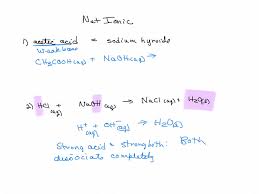 Net Ionic
1) acetic acid = sodium hyroide
weak base
CH₃COOH(aq) + NaOH(aq) →
2) HCl + NaOH(aq) → NaCl(aq) + H₂O(l)
(aq)
H⁺(aq) + OH⁻(aq) → H₂O(l)
Strong acid = strong both: Both
dissociate completely